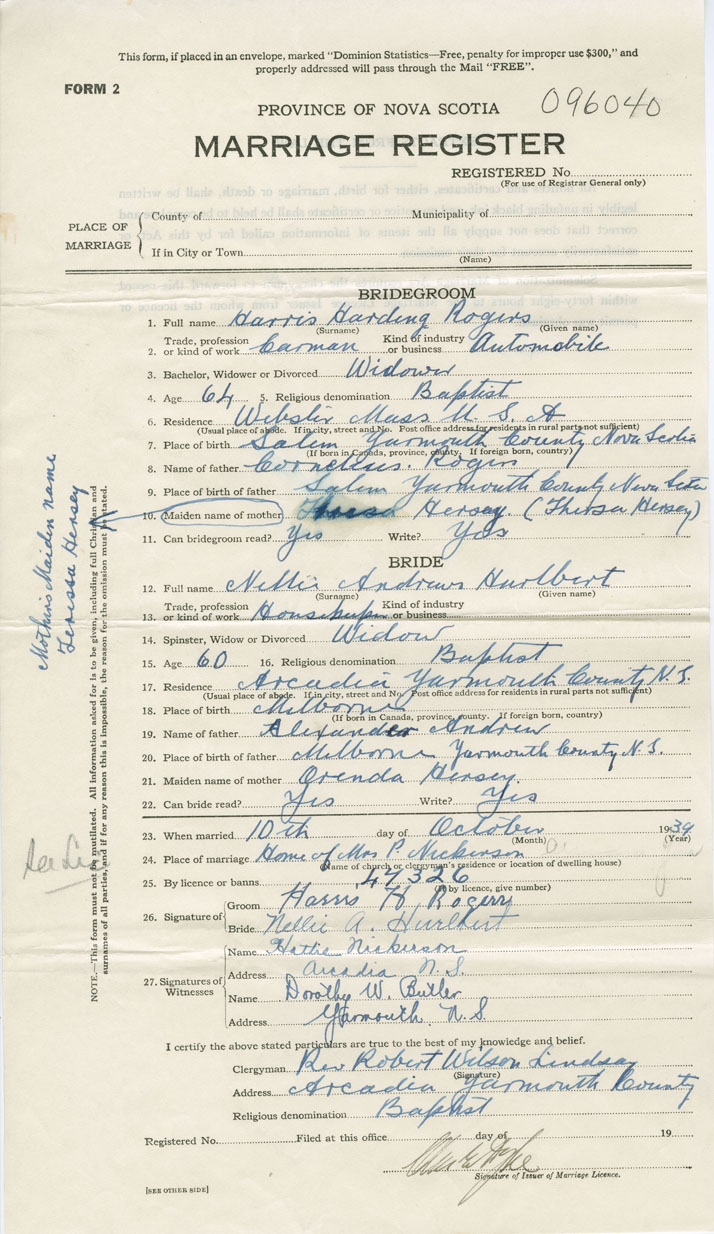 This form, if placed in an envelope, marked "Dominion Statistics—Free, penalty for improper use $300," and
properly addressed will pass through the Mail "FREE".
FORM 2
096040
PROVINCE OF NOVA SCOTIA
MARRIAGE REGISTER
REGISTERED No.
(For use of Registrar General only)
PLACE OF MARRIAGE
County of Municipality of
If in City or Town
(Name)
BRIDEGROOM
1. Full name Harris Harding Rogers
(Surname) (Given name)
2. Trade, profession or kind of work Carman Kind of industry or business Automobile
3. Bachelor, Widower or Divorced Widower
4. Age 64 5. Religious denomination Baptist
6. Residence Webster Mass U. S. A
(Usual place of abode. If in city, street and No. Post office address for residents in rural parts not sufficient)
7. Place of birth Salem Yarmouth County Nova Scotia
(If born in Canada, province, county. If foreign born, country)
8. Name of father Cornelius. Rogers
9. Place of birth of father Salem Yarmouth County Nova Scotia
10. Maiden name of mother Hersey (Thersa Hersey)
11. Can bridegroom read? Yes Write? Yes
BRIDE
12. Full name Nellie Andrews Hurlbert
(Surname) (Given name)
13. Trade, profession or kind of work Housekeeper Kind of industry or business
14. Spinster, Widow or Divorced Widow
15. Age 60 16. Religious denomination Baptist
17. Residence Arcadia Yarmouth County N. S.
(Usual place of abode. If in city, street and No. Post office address for residents in rural parts not sufficient)
18. Place of birth Melborne
(If born in Canada, province, county. If foreign born, country)
19. Name of father Alexander Andrew
20. Place of birth of father Melborne Yarmouth County N. S.
21. Maiden name of mother Orenda Hersey.
22. Can bride read? Yes Write? Yes
23. When married 10th day of October 1939
(Month) (Year)
24. Place of marriage Home of Mrs P. Nickerson
(Name of church or clergyman's residence or location of dwelling house)
25. By licence or banns 47326
(If by licence, give number)
26. Signature of
Groom Harris H. Rogers
Bride Nellie A. Hurlbert
27. Signatures of Witnesses
Name Hattie Nickerson
Address Arcadia N. S.
Name Dorothy W. Butler
Address Yarmouth N. S.
I certify the above stated particulars are true to the best of my knowledge and belief.
Clergyman Rev Robert Wilson Lindsay
(Signature)
Address Arcadia Yarmouth County
Religious denomination Baptist
Registered No. Filed at this office day of 19
Signature of Issuer of Marriage Licence.
[SEE OTHER SIDE]
Mothers Maiden name
Terissa Hersey
NOTE.—This form must not be mutilated. All information asked for is to be given, including full Christian and
surnames of all parties, and if for any reason this is impossible, the reason for the omission must be stated.